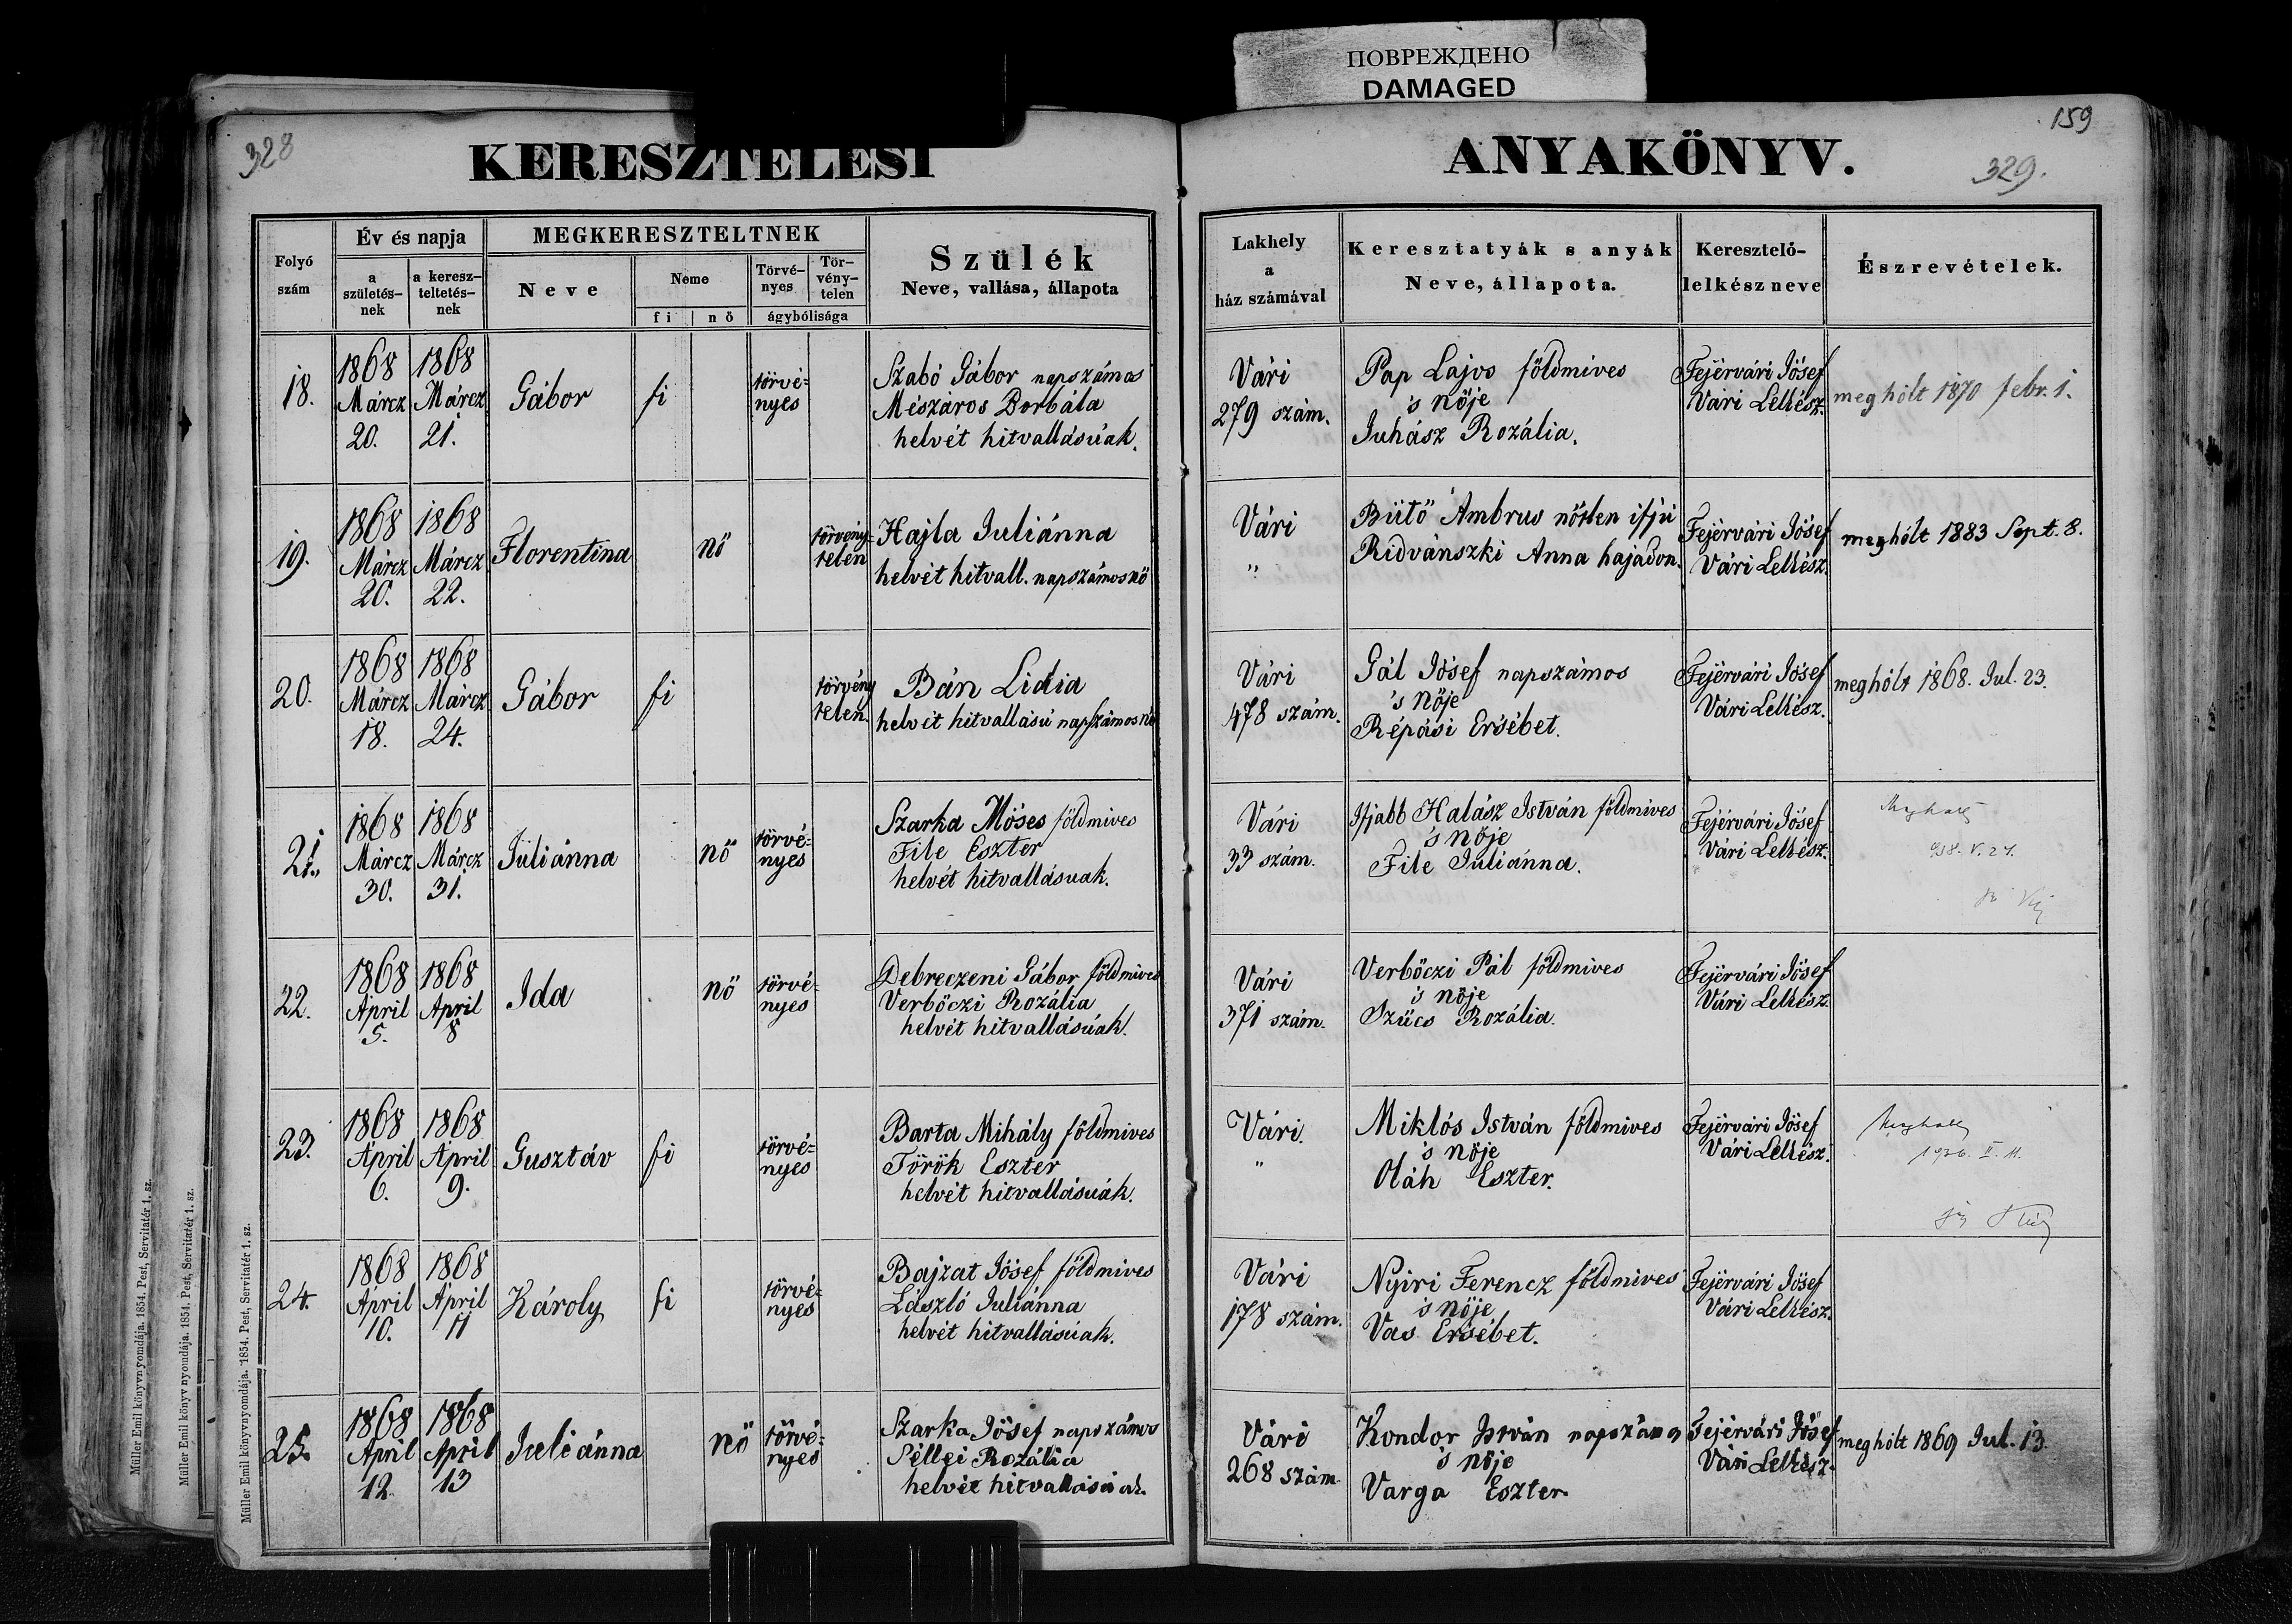 ПОВРЕЖДЕНО
DAMAGED
328
KERESZTELESI
ANYAKÖNYV.
159
329.
Folyó szám
Év és napja
a születés-nek
a keresz-teltetés-nek
MEGKERESZTELTNEK
Neve
Neme
fi
nő
Törvé-nyes
Tör-vény-telen
ágybólisága
Szülék
Neve, vallása, állapota
Lakhely
a
ház számával
Keresztatyák s anyák
Neve, állapota.
Keresztelő-
lelkész neve
Észrevételek.
18.
1868 Márcz 20.
1868 Márcz 21.
Gábor
fi
törvé-nyes
Szabó Gábor napszámos
Mészáros Borbála
helvét hitvallásúak.
Vári
279 szám.
Pap Lajos földmives
's nője
Juhász Rozália.
Fejérvári Jósef
Vári Lelkész.
meghólt 1870 febr. 1.
19.
1868 Márcz 20.
1868 Márcz 22.
Florentina
nő
törvény-telen
Hajla Juliánna
helvét hitvall. napszámosnő
Vári
"
Bütő Ambrus nőtlen ifjú
Ridvánszki Anna hajadon.
Fejérvári Jósef
Vári Lelkész.
meghólt 1883 Sept. 8.
20.
1868 Márcz 18.
1868 Márcz 24.
Gábor
fi
törvény telen
Bán Lidia
helvét hitvallású napszámosnő
Vári
478 szám.
Gál Jósef napszámos
's nője
Répási Ersébet.
Fejérvári Jósef
Vári Lelkész.
meghólt 1868. Jul. 23.
21.
1868 Márcz 30.
1868 Márcz 31.
Juliánna
nő
törvé-nyes
Szarka Móses földmives
File Eszter
helvét hitvallásuak.
Vári
33 szám.
Ifjabb Halász István földmives
's nője
File Juliánna.
Fejérvári Jósef
Vári Lelkész.
Meghalt
22.
1868 April 5.
1868 April 8
Ida
nő
törvé-nyes
Debreczeni Gábor földmives
Verbőczi Rozália
helvét hitvallásúak.
Vári
371 szám.
Verbőczi Pál földmives
's nője
Szűcs Rozália.
Fejérvári Jósef
Vári Lelkész.
23.
1868 April 6.
1868 April 9.
Gusztáv
fi
törvé-nyes
Barta Mihály földmives
Török Eszter
helvét hitvallásúak.
Vári.
"
Miklós István földmives
's nője
Oláh Eszter.
Fejérvári Jósef
Vári Lelkész.
Meghalt
24.
1868 April 10.
1868 April 11
Károly
fi
törvé-nyes
Bajzat Jósef földmives
László Juliánna
helvét hitvallásúak.
Vári
178 szám.
Nyiri Ferencz földmives
's nője
Vas Ersébet.
Fejérvári Jósef
Vári Lelkész.
25.
1868 April 12.
1868 April 13
Juliánna
nő
törvé-nyes
Szarka Jósef napszámos
Séllei Rozália
helvét hitvallásúak.
Vári
268 szám.
Kondor István napszámos
's nője
Varga Eszter.
Fejérvári Jósef
Vári Lelkész.
meghólt 1869 Jul. 13.
Müller Emil könyvnyomdája. 1854. Pest, Servitatér 1. sz.
Müller Emil könyvnyomdája. 1854. Pest, Servitatér 1. sz.
Müller Emil könyvnyomdája. 1854. Pest, Servitatér 1. sz.